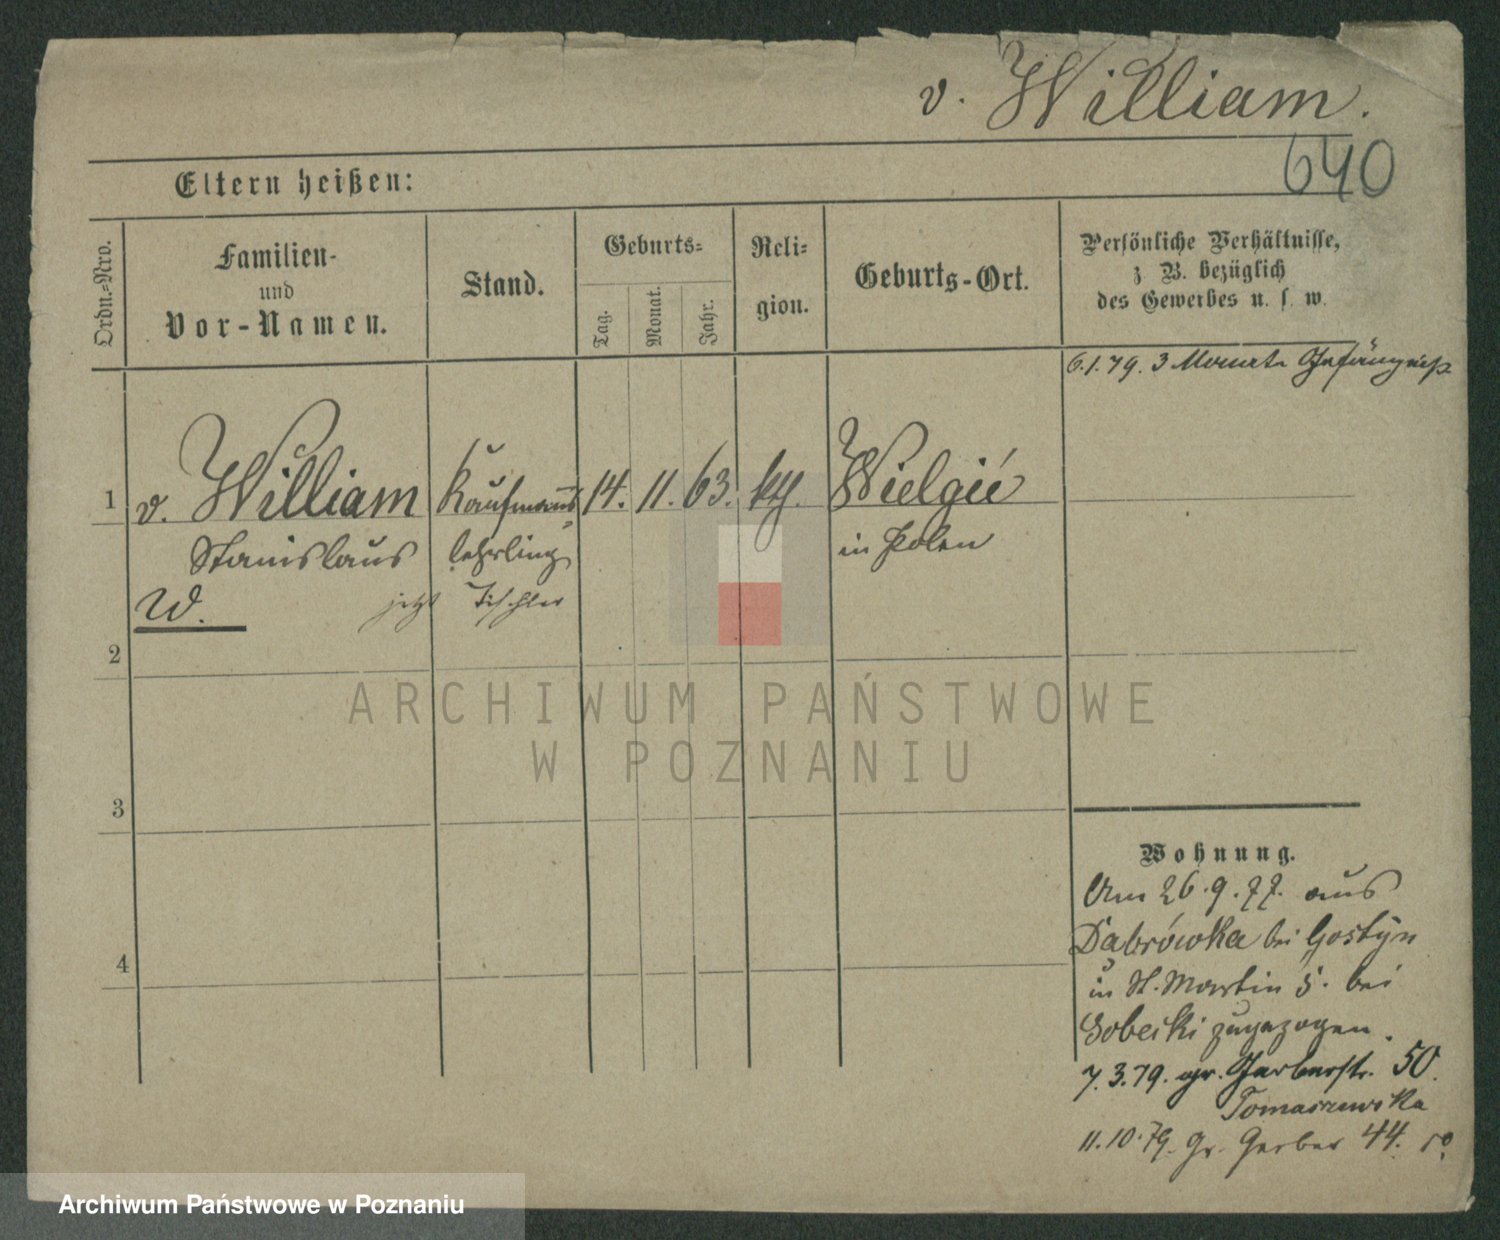 v. William.
640
Eltern heißen:
Ordn.=Nro.
Familien-
und
Vor-Namen.
Stand.
Geburts=
Tag.
Monat.
Jahr.
Reli-
gion.
Geburts-Ort.
Persönliche Verhältnisse,
z. B. bezüglich
des Gewerbes u. s. w.
6.1.79. 3 Monate Gefängniß
1 v. William Kaufmanns 14. 11. 63. kth. Wielgié
Stanislaus lehrling in Polen
W. jetzt Tischler
2
ARCHIWUM PAŃSTWOWE
W POZNANIU
3
Wohnung.
Am 26.9.77. aus
Dabrówka bei Gostyn
in St. Martin 5. bei
Sobecki zugezogen.
7.3.79. gr. Gerberstr. 50.
Tomaszewska
11.10.79. Gr. Gerber 44.
4
Archiwum Państwowe w Poznaniu